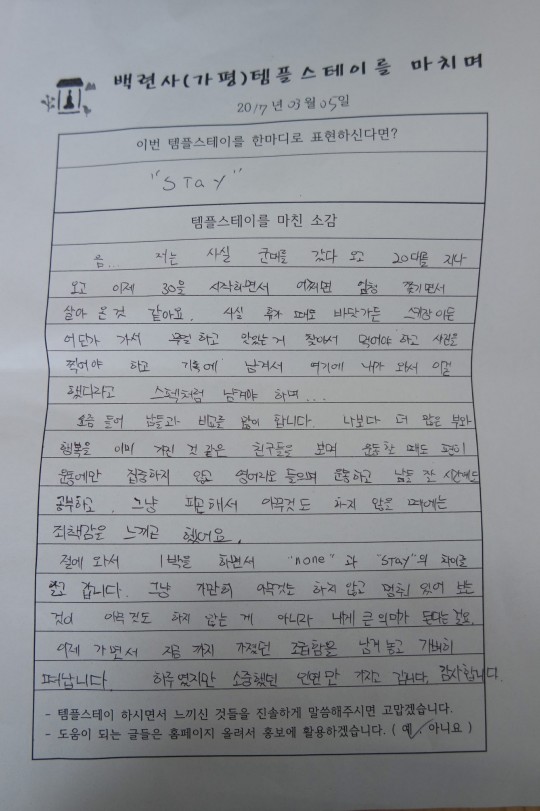 백련사(가평)템플스테이를 마치며
2017년 03월 05일
이번 템플스테이를 한마디로 표현하신다면?
"STay"
템플스테이를 마친 소감
음... 저는 사실 군대를 갔다 오고 20대를 지나
오고 이제 30을 시작하면서 어쩌면 엄청 쫓기면서
살아 온 것 같아요. 사실 휴가 때도 바닷가든 스키장이든
어딘가 가서 무얼 하고 맛있는 거 찾아서 먹어야 하고 사진을
찍어야 하고 기록에 남겨서 여기에 내가 와서 이걸
했다라고 스펙처럼 남겨야 하며...
요즘 들어 남들과 비교를 많이 합니다. 나보다 더 많은 부와
행복을 이미 가진 것 같은 친구들을 보며 운동할 때도
운동에만 집중하지 않고 영어라도 들으며 운동하고 남들 잔 시간에도
공부하고. 그냥 피곤해서 아무것도 하지 않을 때에는
죄책감을 느끼곤 했어요.
절에 와서 1박을 하면서 "none"과 "STay"의 차이를
알고 갑니다. 그냥 가만히 아무것도 하지 않고 멈춰 있어 보는
것이 아무 것도 하지 않는 게 아니라 내게 큰 의미가 된다는 걸요.
이제 가면서 지금 까지 가졌던 조급함을 남겨 놓고 가벼히
떠납니다. 하루였지만 소중했던 인연만 가지고 갑니다. 감사합니다.
- 템플스테이 하시면서 느끼신 것들을 진솔하게 말씀해주시면 고맙겠습니다.
- 도움이 되는 글들은 홈페이지 올려서 홍보에 활용하겠습니다. ( 예, 아니요 )